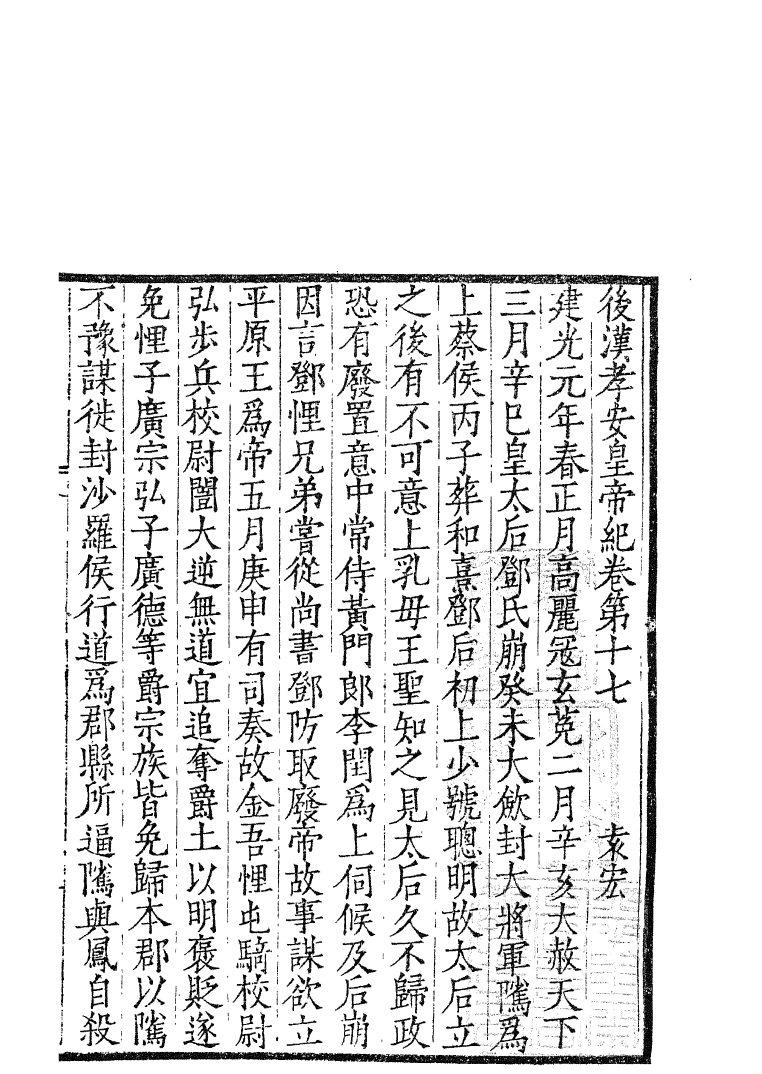 後漢孝安皇帝紀卷第十七 袁宏
建光元年春正月高麗冦玄菟二月辛亥大赦天下
三月辛巳皇太后鄧氏崩癸未大歛封大將軍隲爲
上蔡侯丙子葬和熹鄧后初上少號聰明故太后立
之後有不可意上乳母王聖知之見太后久不歸政
恐有廢置意中常侍黃門郎李閏爲上伺候及后崩
因言鄧悝兄弟嘗從尚書鄧防取廢帝故事謀欲立
平原王爲帝五月庚申有司奏故金吾悝屯騎校尉
弘步兵校尉閶大逆無道宜追奪爵土以明褒貶遂
免悝子廣宗弘子廣德等爵宗族皆免歸本郡以隲
不豫謀徙封沙羅侯行道爲郡縣所逼隲與鳳自殺